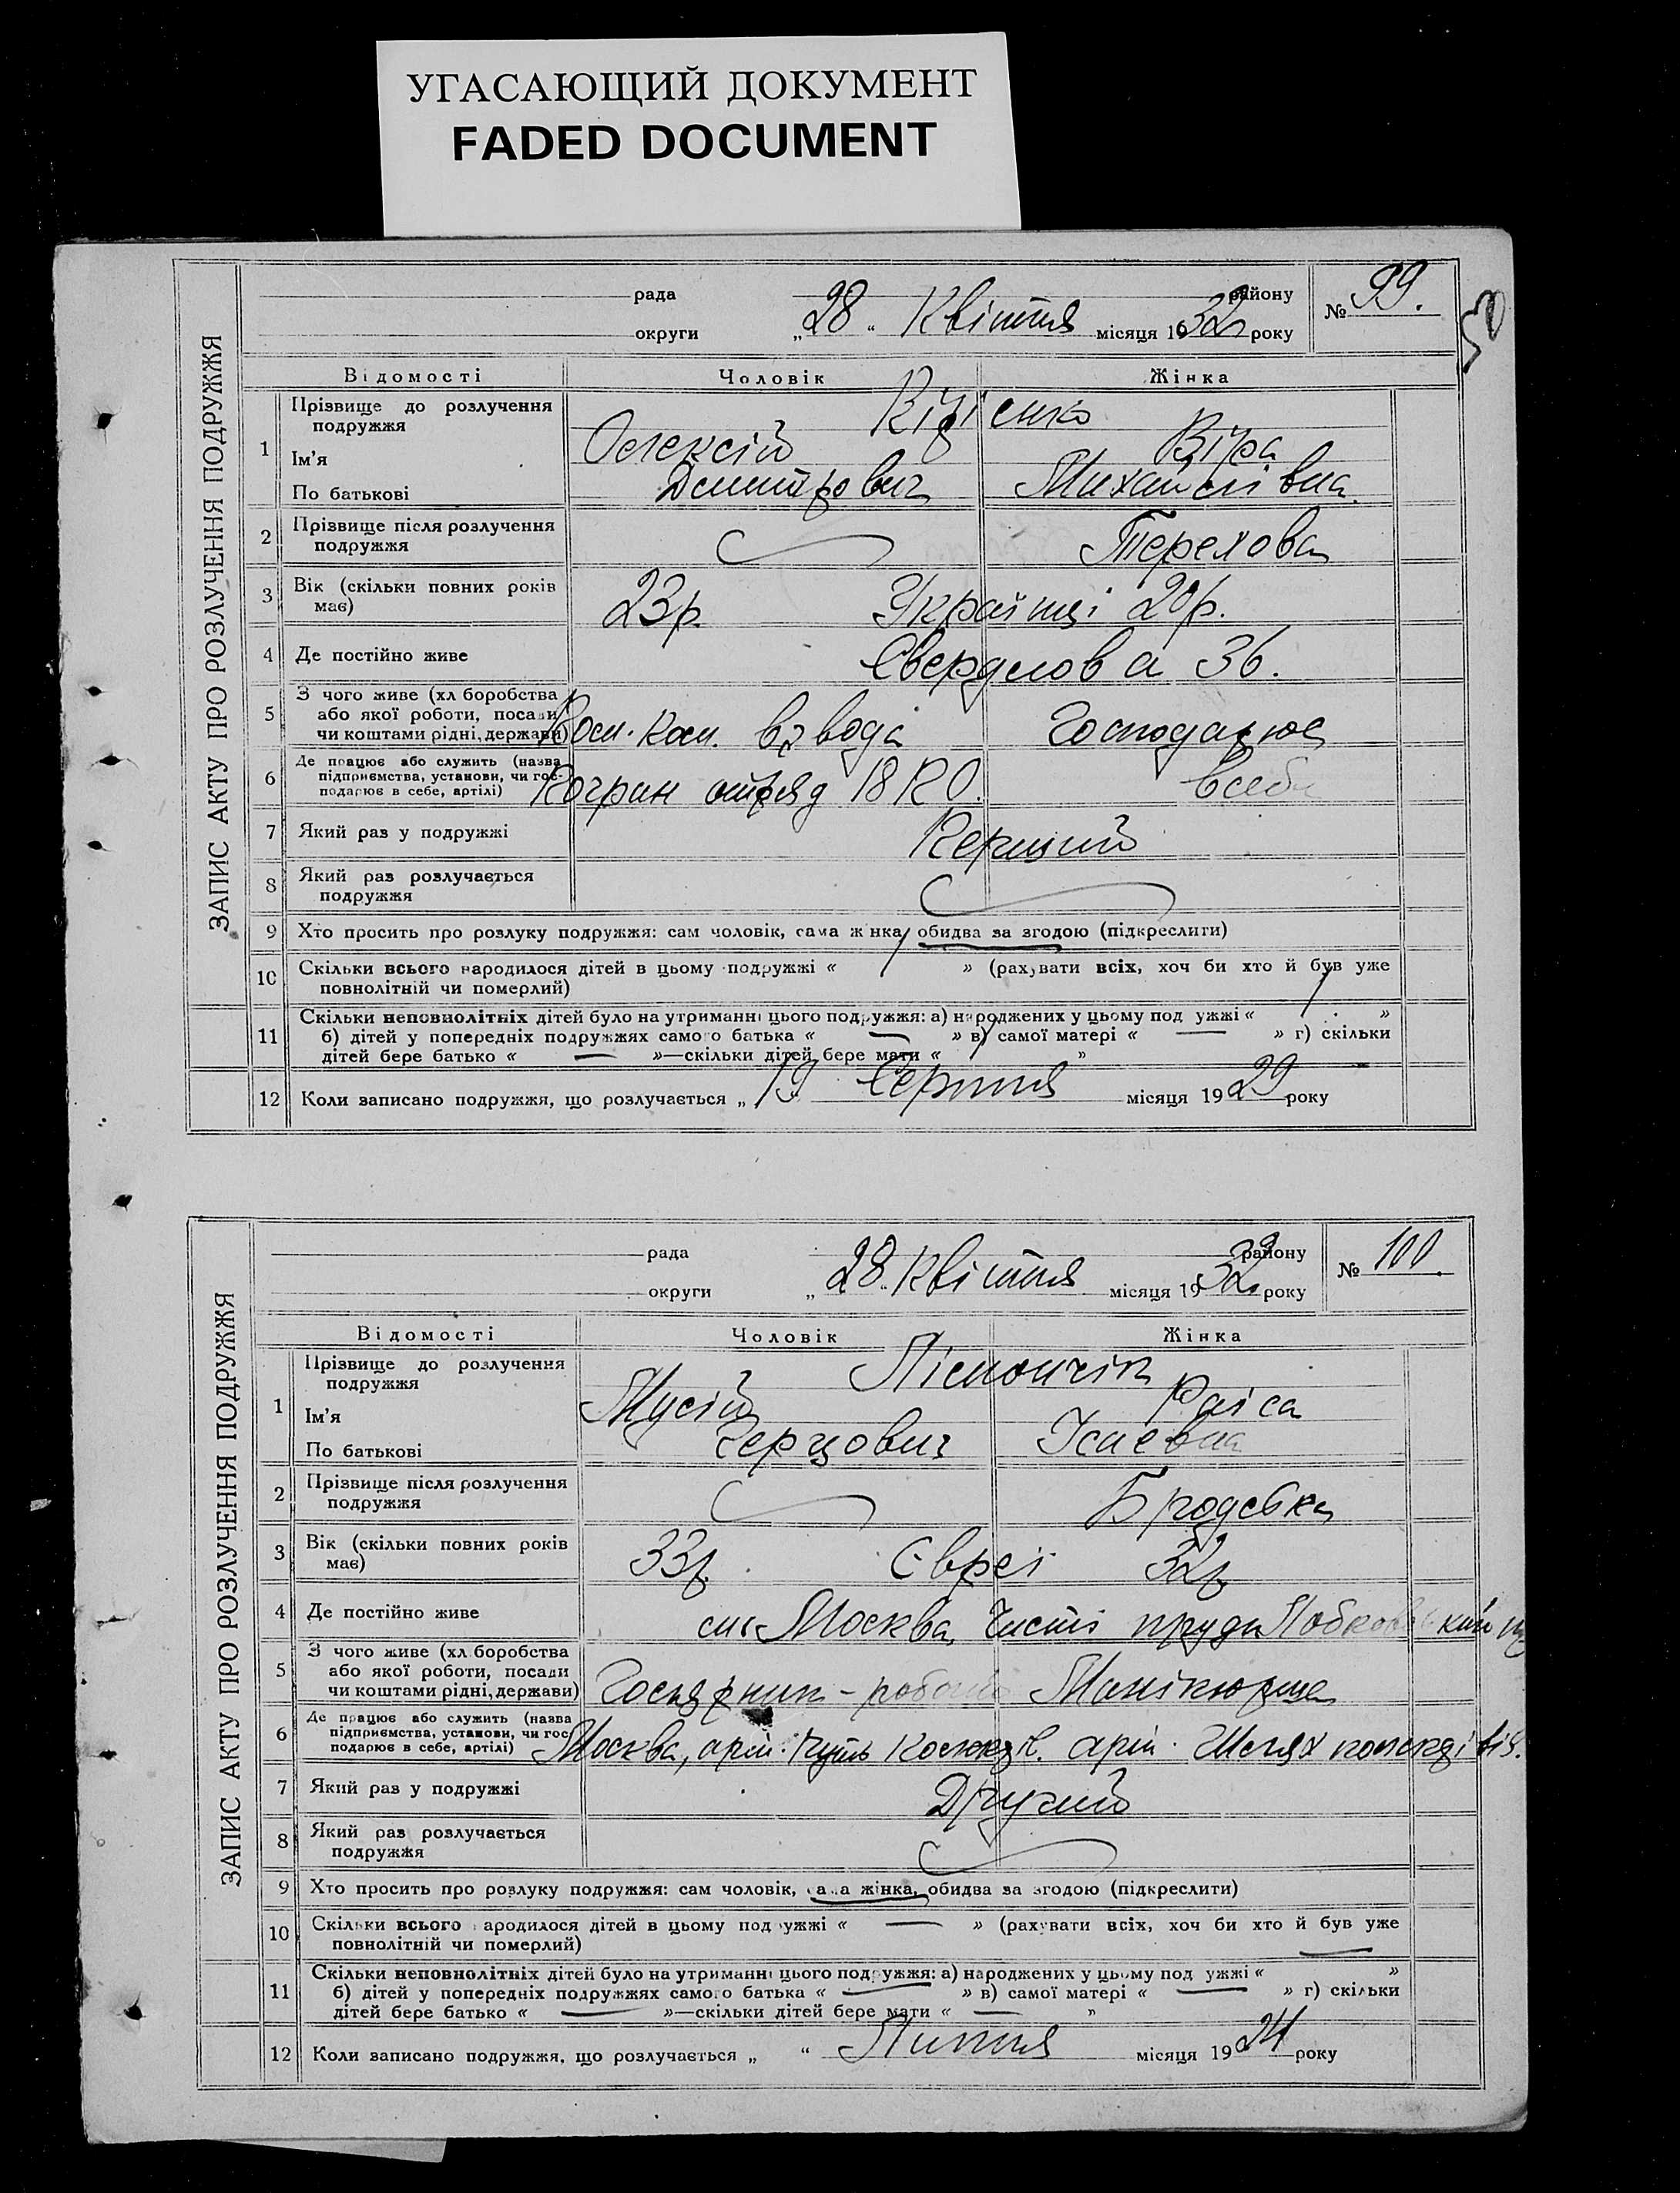 УГАСАЮЩИЙ ДОКУМЕНТ
FADED DOCUMENT
ЗАПИС АКТУ ПРО РОЗЛУЧЕННЯ ПОДРУЖЖЯ
рада району № 99.
округи „28“ Квітня місяця 1932 року
50
Відомості Чоловік Жінка
1 Прізвище до розлучення подружжя
Ім'я Олексій Віра
По батькові Дмитрович Михайлівна
2 Прізвище після розлучення подружжя Терехова
3 Вік (скільки повних років має) 23р. Українці 20р.
4 Де постійно живе Свердлова 36.
5 З чого живе (хліборобства
або якої роботи, посади
чи коштами рідні, держави) Пом. Ком. взвода Господарює
6 Де працює або служить (назва
підприємства, установи, чи гос-
подарює в себе, артілі) Погран отряд 18 всебе
7 Який раз у подружжі Перший
8 Який раз розлучається
подружжя
9 Хто просить про розлуку подружжя: сам чоловік, сама жінка, обидва за згодою (підкреслити)
10 Скільки всього народилося дітей в цьому подружжі « » (рахувати всіх, хоч би хто й був уже
повнолітній чи померлий)
11 Скільки неповнолітніх дітей було на утриманні цього подружжя: а) народжених у цьому подружжі « »
б) дітей у попередніх подружжях самого батька « — » в) самої матері « — » г) скільки
дітей бере батько « — »—скільки дітей бере мати « »
12 Коли записано подружжя, що розлучається „19 Серпня місяця 1929 року
ЗАПИС АКТУ ПРО РОЗЛУЧЕННЯ ПОДРУЖЖЯ
рада району № 100.
округи „28“ Квітня місяця 1932 року
Відомості Чоловік Жінка
1 Прізвище до розлучення
подружжя
Ім'я Мусій Раіса
По батькові Герцович Ісаевна
2 Прізвище після розлучення
подружжя
3 Вік (скільки повних років
має) 33р. Євреї 32р
4 Де постійно живе Москва, Чисті пруди
5 З чого живе (хліборобства
або якої роботи, посади
чи коштами рідні, держави) Манікюрша
6 Де працює або служить (назва
підприємства, установи, чи гос-
подарює в себе, артілі) Москва, Шлях
7 Який раз у подружжі Другий
8 Який раз розлучається
подружжя
9 Хто просить про розлуку подружжя: сам чоловік, сама жінка, обидва за згодою (підкреслити)
10 Скільки всього народилося дітей в цьому подружжі « — » (рахувати всіх, хоч би хто й був уже
повнолітній чи померлий)
11 Скільки неповнолітніх дітей було на утриманні цього подружжя: а) народжених у цьому подружжі « »
б) дітей у попередніх подружжях самого батька « — » в) самої матері « — » г) скільки
дітей бере батько « — »—скільки дітей бере мати « — »
12 Коли записано подружжя, що розлучається „ “ Липня місяця 1924 року